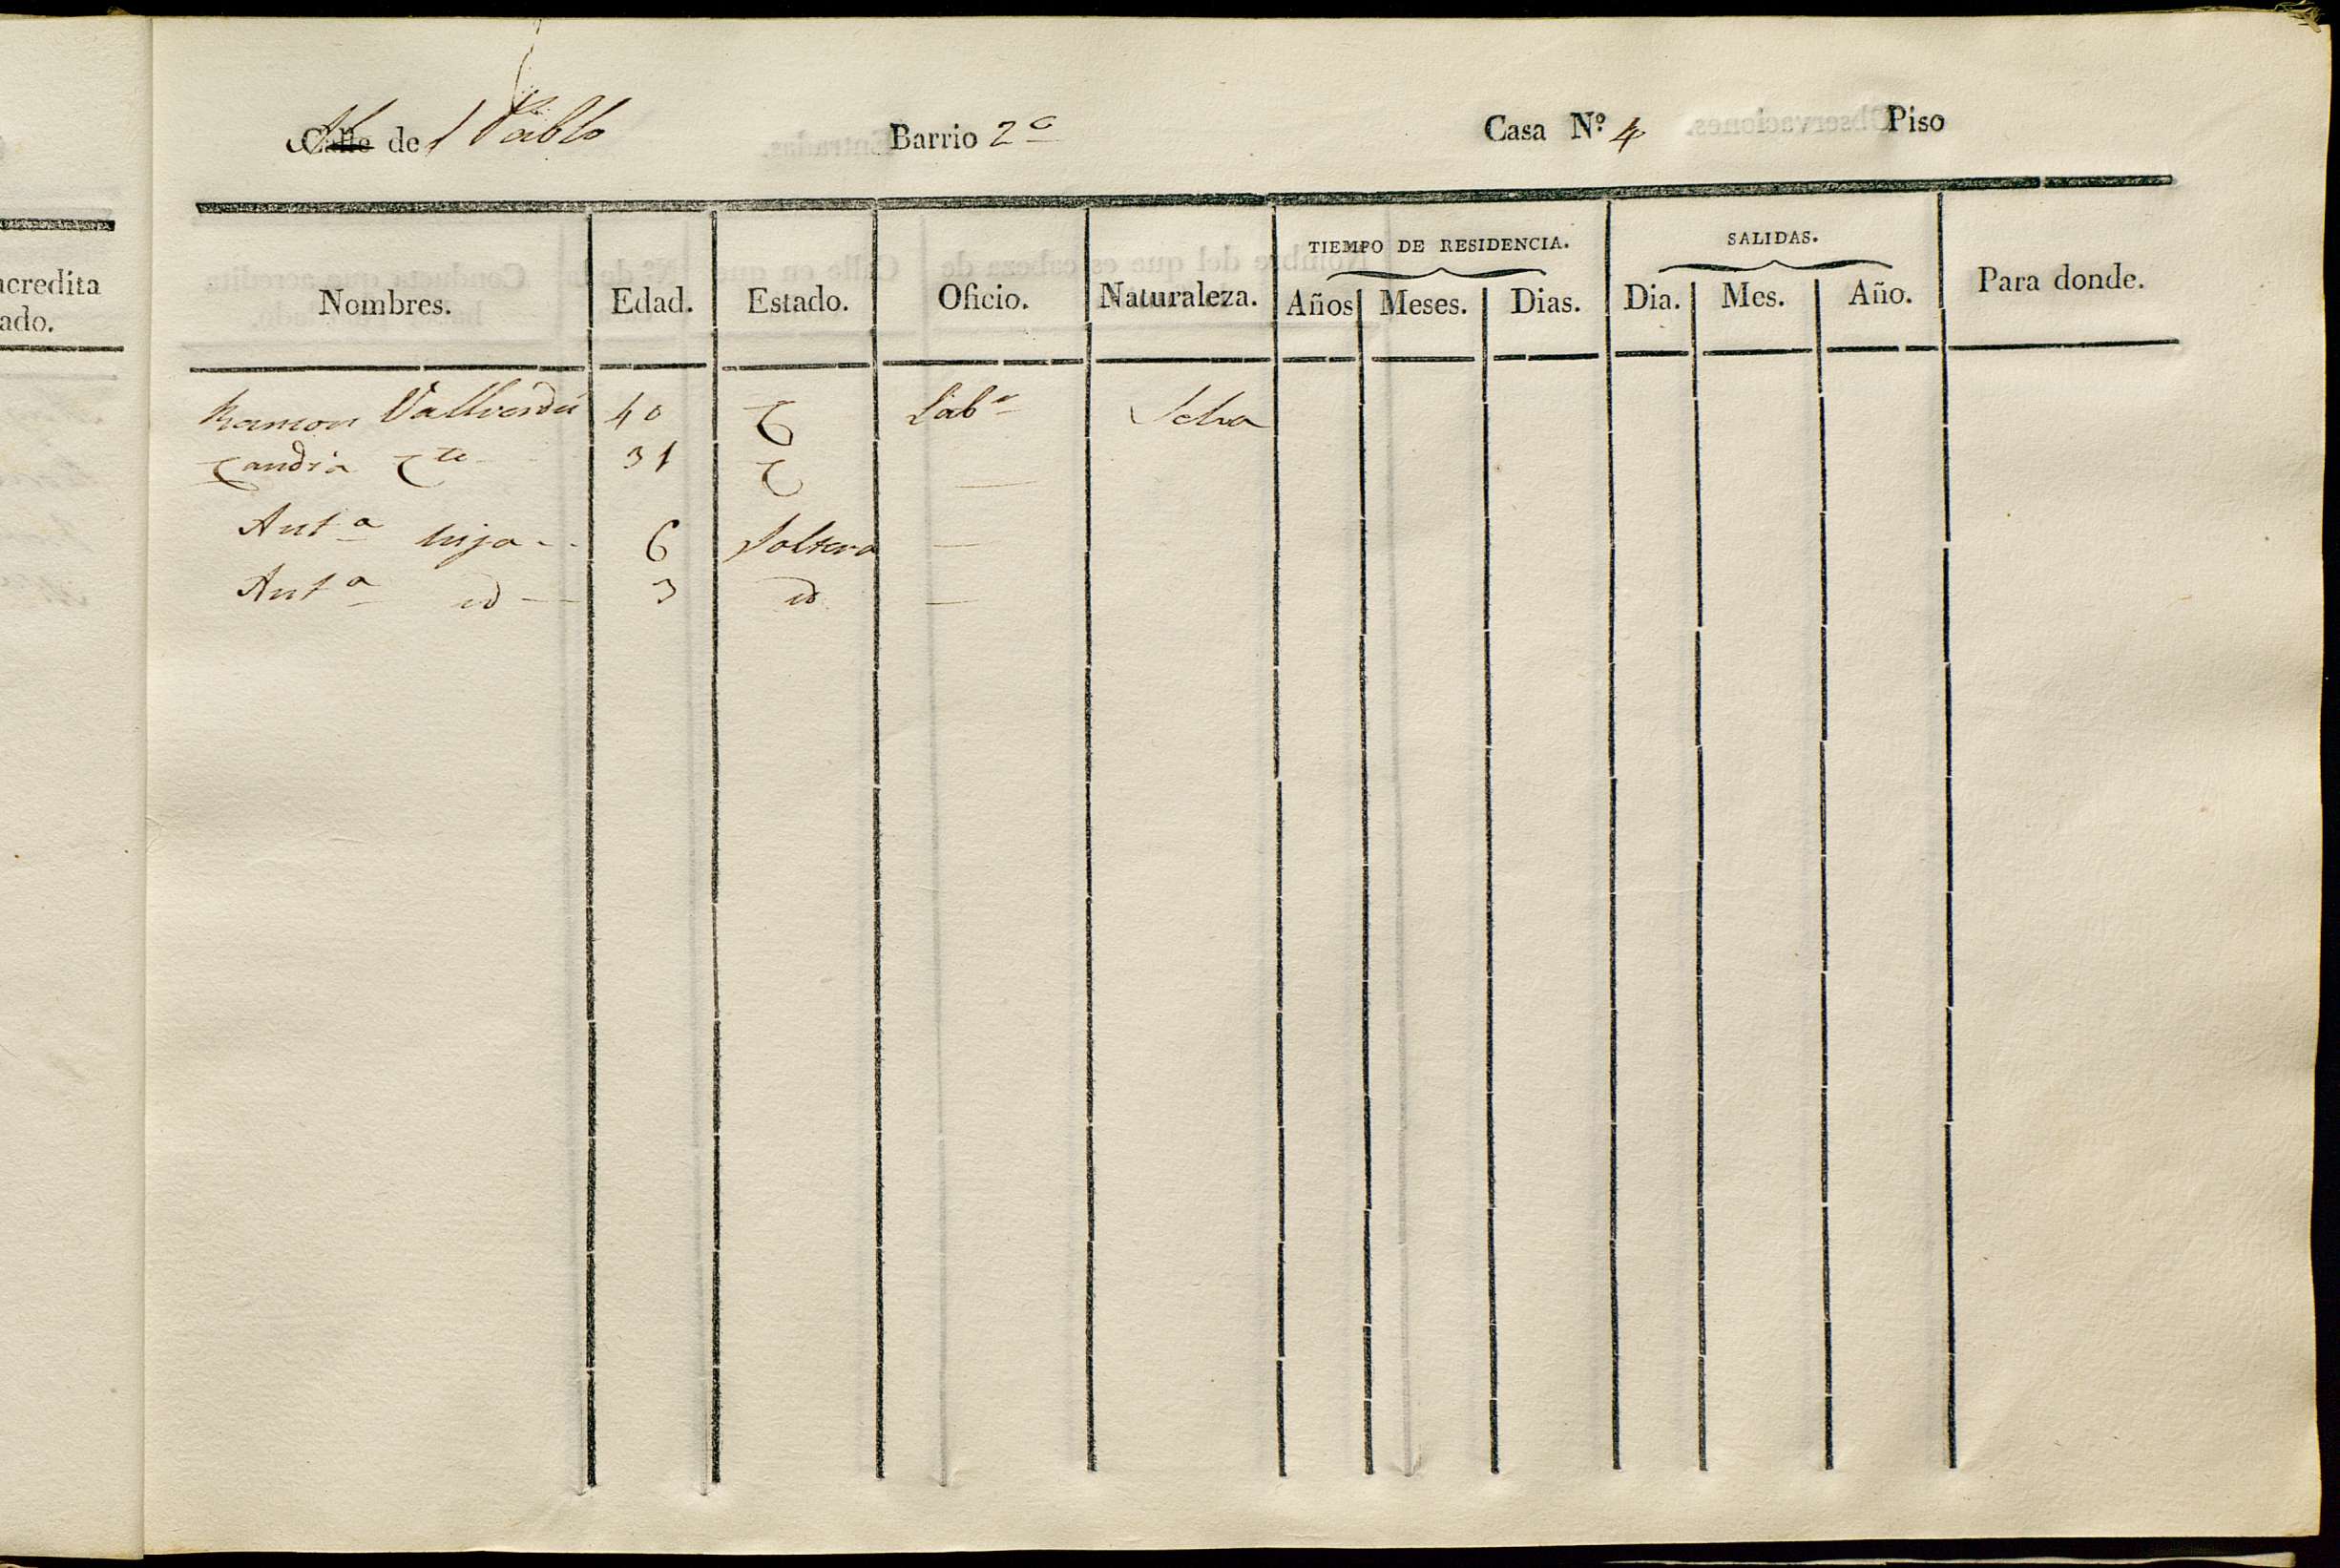 Calle de S Pablo Barrio 2º Casa Nº 4 Piso
acredita
ado.
TIEMPO DE RESIDENCIA. SALIDAS.
Nombres. Edad. Estado. Oficio. Naturaleza. Años Meses. Dias. Dia. Mes. Año. Para donde.
Ramon Vallverdú 40 C Labr Selva
Candia Cte 31 C —
Anta hija 6 Soltera —
Anta id 3 id —